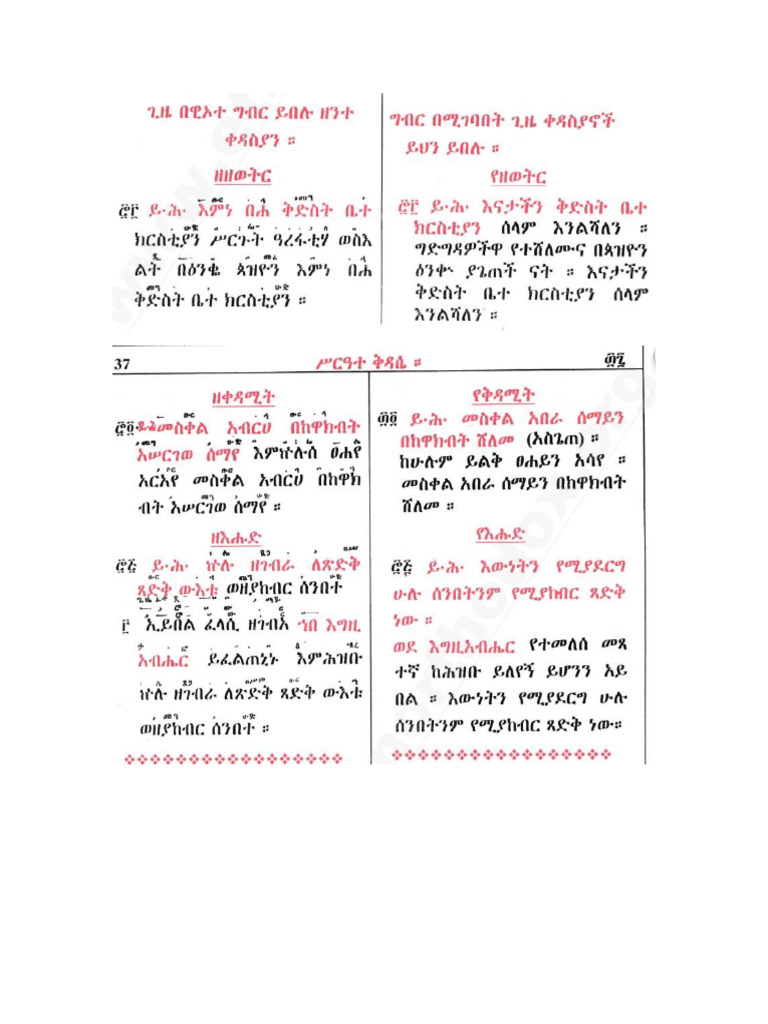 ጊዜ በዊኦተ ግብር ይበሉ ዘንተ
ቀዳስያን ።
ዘዘወትር
፸፫ ይ.ሕ. እምነ በሐ ቅድስት ቤተ
ክርስቲያን ሥርጉት ዓረፋቲሃ ወስእ
ልት በዕንቈ ጳዝዮን እምነ በሐ
ቅድስት ቤተ ክርስቲያን ።
ግብር በሚገባበት ጊዜ ቀዳስያኖች
ይህን ይበሉ ።
የዘወትር
፸፫ ይ.ሕ. እናታችን ቅድስት ቤተ
ክርስቲያን ሰላም እንልሻለን ።
ግድግዳዎችዋ የተሸለሙና በጳዝዮን
ዕንቍ ያጌጠች ናት ። እናታችን
ቅድስት ቤተ ክርስቲያን ሰላም
እንልሻለን ።
37 ሥርዓተ ቅዳሴ ። ፴፯
ዘቀዳሚት
፸፬ ይ.ሕ. መስቀል አብርሀ በከዋክብት
አሠርገወ ሰማየ እምኵሉሰ ፀሐየ
አርአየ መስቀል አብርሀ በከዋክ
ብት አሠርገወ ሰማየ ።
ዘእሑድ
፸፭ ይ.ሕ. ኵሉ ዘገብራ ለጽድቅ
ጻድቅ ውእቱ ወዘያከብር ሰንበተ
፫ ኢይበል ፈላሲ ዘገብአ ኀበ እግዚ
አብሔር ይፈልጠኒኑ እምሕዝቡ
ኵሉ ዘገብራ ለጽድቅ ጻድቅ ውእቱ
ወዘያከብር ሰንበተ ።
የቅዳሚት
፸፬ ይ.ሕ. መስቀል አበራ ሰማይን
በከዋክብት ሸለመ (አስጌጠ) ።
ከሁሉም ይልቅ ፀሐይን አሳየ ።
መስቀል አበራ ሰማይን በከዋክብት
ሸለመ ።
የእሑድ
፸፭ ይ.ሕ. እውነትን የሚያደርግ
ሁሉ ሰንበትንም የሚያከብር ጻድቅ
ነው ።
ወደ እግዚአብሔር የተመለሰ መጻ
ተኛ ከሕዝቡ ይለየኝ ይሆንን አይ
በል ። እውነትን የሚያደርግ ሁሉ
ሰንበትንም የሚያከብር ጻድቅ ነው።